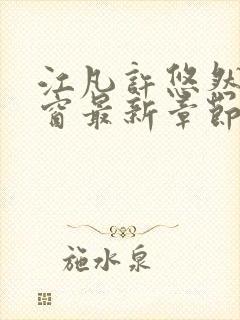 江凡許悠然
窗最新章節
施水泉